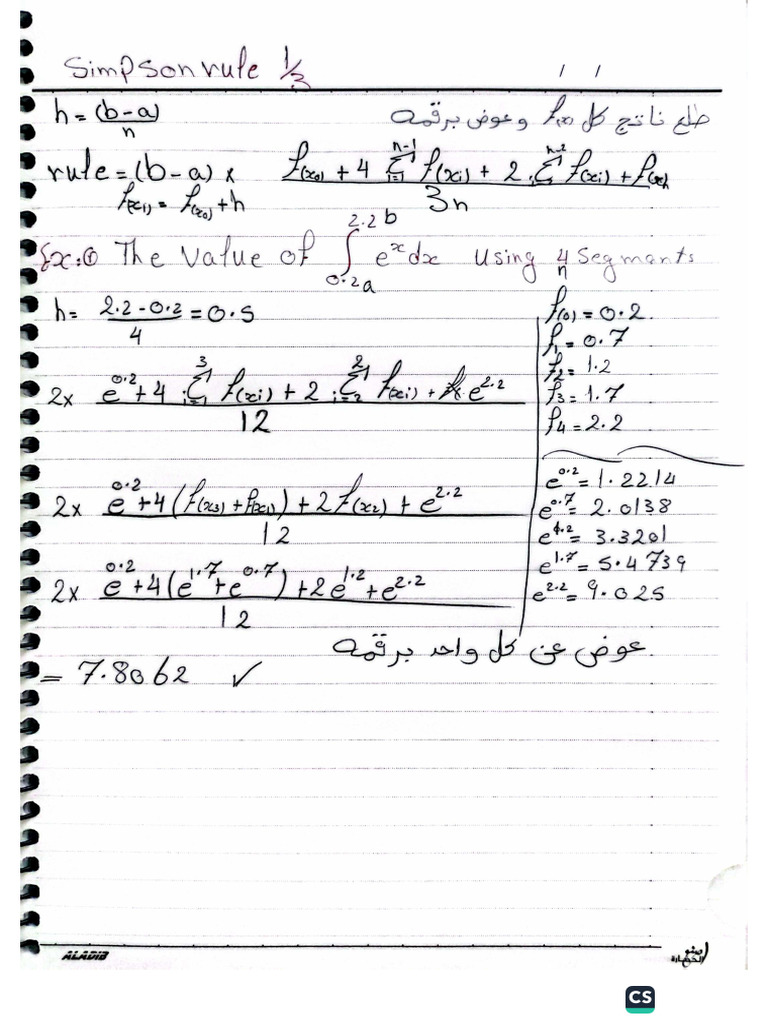 Simpson rule 1/3
/ /
h = (b-a)/n
طلع ناتج كل f(x) وعوض برقمه
rule = (b-a) × (f(x₀) + 4 Σ_{i=1}^{n-1} f(xi) + 2 Σ_{i=2}^{n-2} f(xi) + f(xn)) / 3n
f(x1) = f(x₀) + h
Ex:① The Value of ∫_{0.2 a}^{2.2 b} e^x dx using 4 segmants
n
h = (2.2 - 0.2)/4 = 0.5
2 × (e^0.2 + 4 Σ_{i=1}^{3} f(xi) + 2 Σ_{i=2}^{2} f(xi) + e^2.2) / 12
2 × (e^0.2 + 4 (f(x3) + f(x1)) + 2 f(x2) + e^2.2) / 12
2 × (e^0.2 + 4(e^1.7 + e^0.7) + 2e^1.2 + e^2.2) / 12
= 7.8062 ✓
f(0) = 0.2
f1 = 0.7
f2 = 1.2
f3 = 1.7
f4 = 2.2
e^0.2 = 1.2214
e^0.7 = 2.0138
e^1.2 = 3.3201
e^1.7 = 5.4739
e^2.2 = 9.025
عوض عن كل واحد برقمه
ALADIB
CS